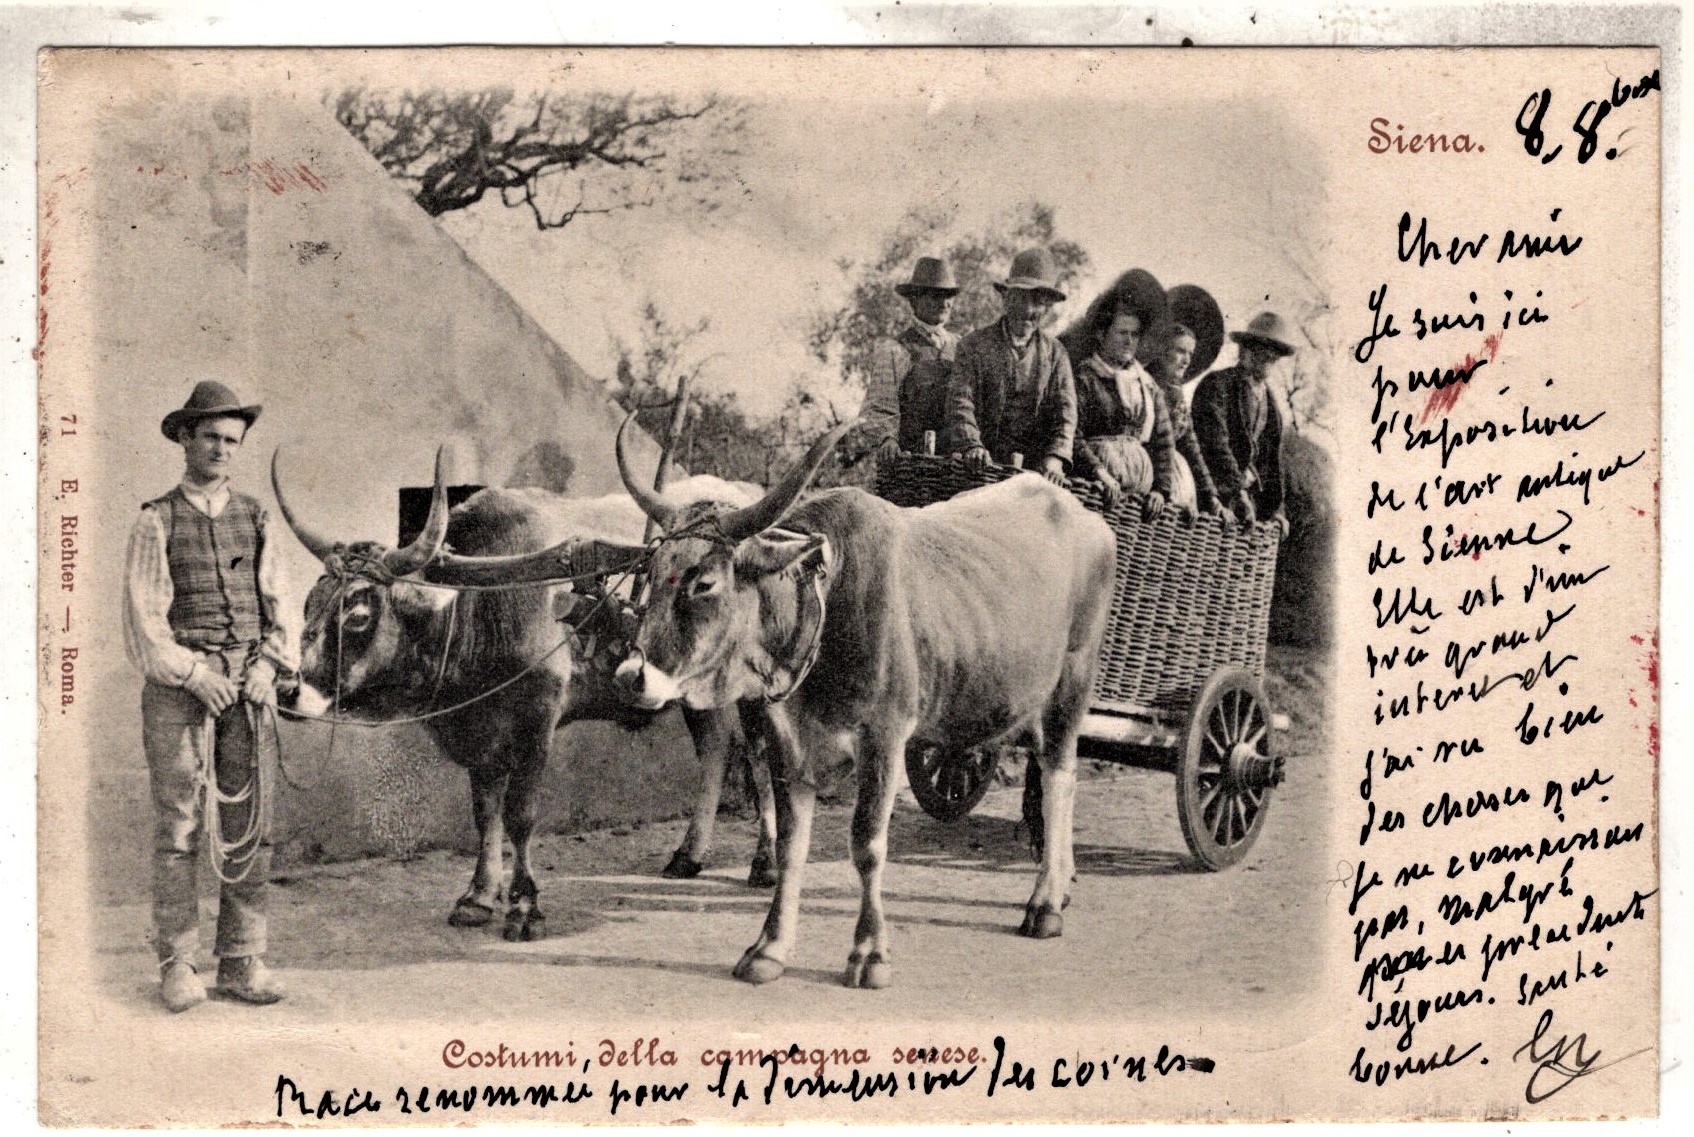 Siena. 8. 8.bre
Cher ami
Je suis ici
pour
l'Exposition
de l'art antique
de Sienne
Elle est d'un
très grand
interet et
j'ai vu bien
des choses que
je ne connaissais
pas, malgré
mes precedents
séjours. Santé
bonne.
Costumi, della campagna senese.
Race renommée pour la dimension des cornes
71 E. Richter — Roma.